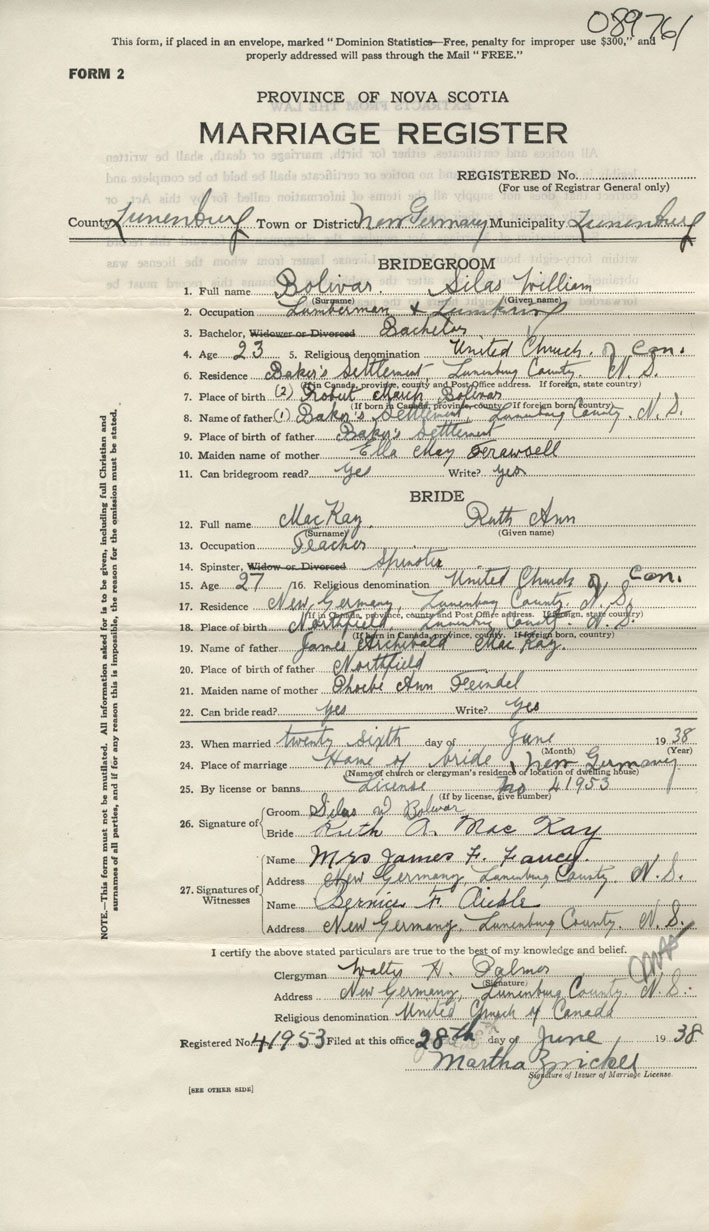 089761
This form, if placed in an envelope, marked "Dominion Statistics—Free, penalty for improper use $300," and
properly addressed will pass through the Mail "FREE."
FORM 2
PROVINCE OF NOVA SCOTIA
MARRIAGE REGISTER
REGISTERED No.
(For use of Registrar General only)
County Lunenburg Town or District New Germany Municipality Lunenburg
BRIDEGROOM
1. Full name Bolivar. Silas William
(Surname) (Given name)
2. Occupation Lumberman &
3. Bachelor, Widower or Divorced Bachelor
4. Age 23 5. Religious denomination United Church of Can.
6. Residence Baker's Settlement, Lunenburg County. N. S.
(If in Canada, province, county and Post Office address. If foreign, state country)
7. Place of birth (2) Robert March Bolivar
(If born in Canada, province, county. If foreign born, country)
8. Name of father (1) Baker's Settlement, Lunenburg County. N. S.
9. Place of birth of father Baker's Settlement
10. Maiden name of mother Ella May
11. Can bridegroom read? Yes Write? yes
BRIDE
12. Full name MacKay. Ruth Ann
(Surname) (Given name)
13. Occupation Teacher
14. Spinster, Widow or Divorced Spinster
15. Age 27 16. Religious denomination United Church of Can.
17. Residence New Germany, Lunenburg County, N. S.
(If in Canada, province, county and Post Office address. If foreign, state country)
18. Place of birth Northfield, Lunenburg County. N. S.
(If born in Canada, province, county. If foreign born, country)
19. Name of father James Archibald MacKay.
20. Place of birth of father Northfield
21. Maiden name of mother Phoebe Ann Feindel
22. Can bride read? Yes Write? Yes
23. When married twenty sixth day of June 1938
(Month) (Year)
24. Place of marriage Home of bride, New Germany
(Name of church or clergyman's residence or location of dwelling house)
25. By license or banns License no 41953
(If by license, give number)
26. Signature of Groom Silas W Bolivar
Bride Ruth A. MacKay
27. Signatures of Witnesses Name Mrs James F. Fancy.
Address New Germany, Lunenburg County N. S.
Name Bernice F.
Address New Germany, Lunenburg County. N. S.
I certify the above stated particulars are true to the best of my knowledge and belief.
Clergyman Walter H. Palmer
(Signature)
Address New Germany, Lunenburg County N. S.
Religious denomination United Church of Canada
Registered No. 41953 Filed at this office 28th day of June 1938
Martha Zwicker
Signature of Issuer of Marriage License.
[SEE OTHER SIDE]
NOTE.—This form must not be mutilated. All information asked for is to be given, including full Christian and
surnames of all parties, and if for any reason this is impossible, the reason for the omission must be stated.